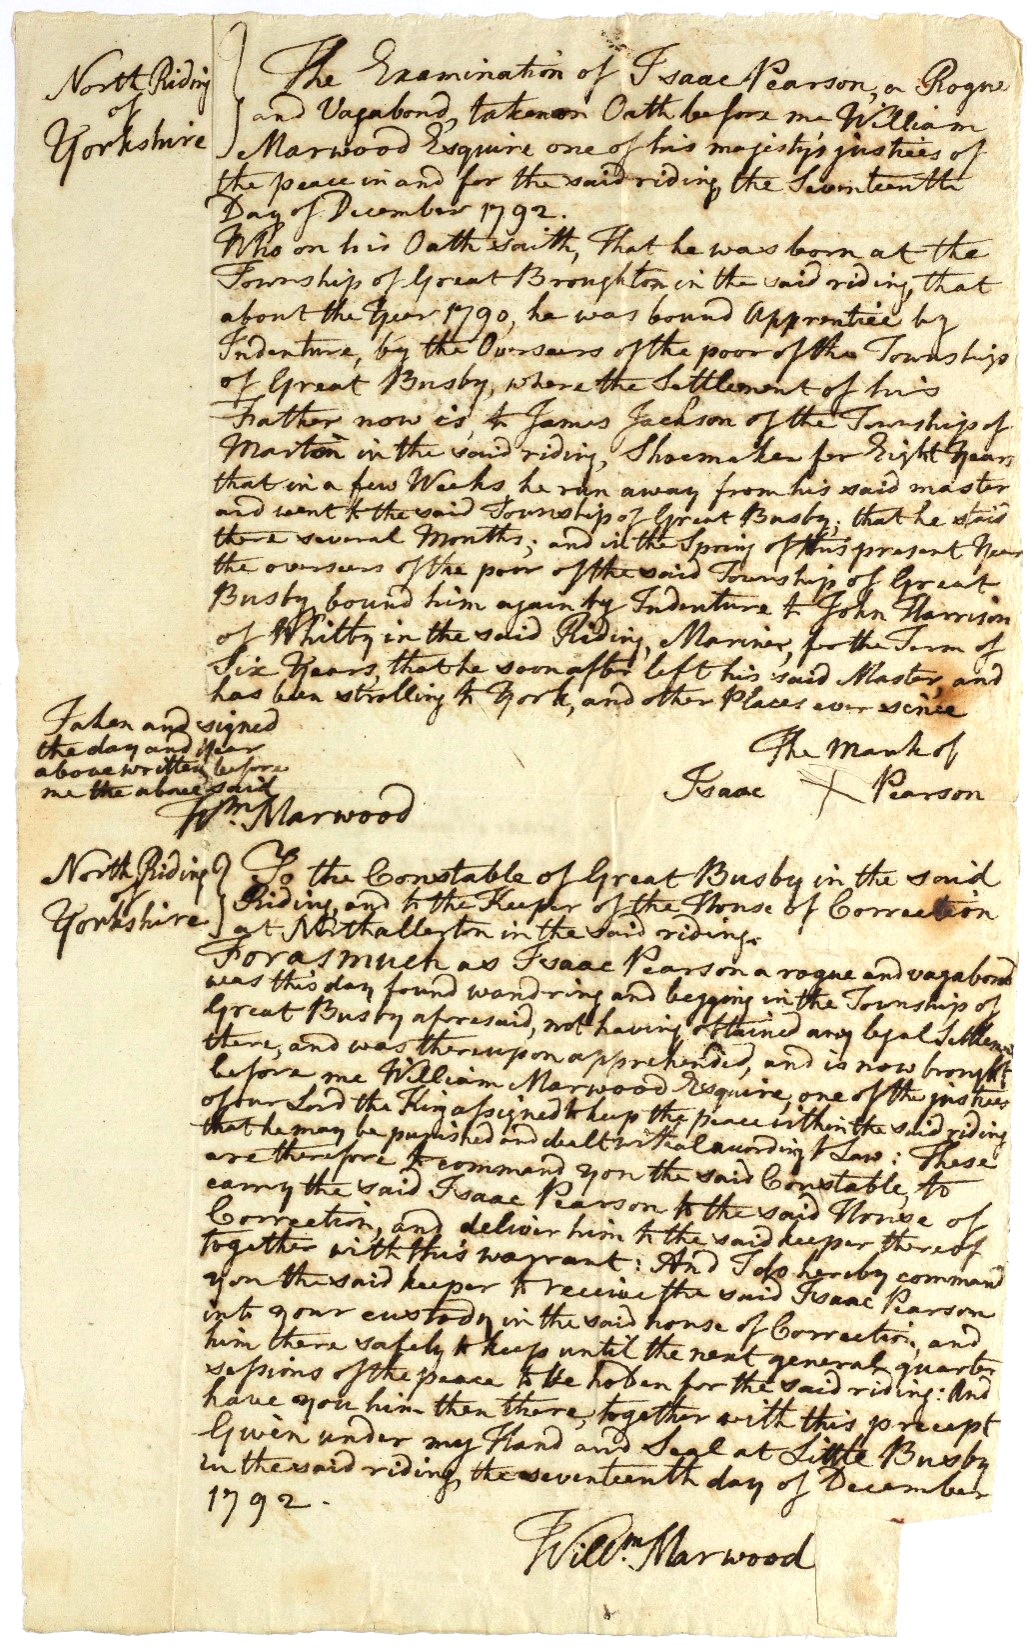 North Riding
of
Yorkshire
The Examination of Isaac Pearson, a Rogue
and Vagabond, taken on Oath before me William
Marwood Esquire one of his majesty's justices of
the peace in and for the said riding, the Seventeenth
Day of December 1792.
Who on his Oath saith, That he was born at the
Township of Great Broughton in the said riding, that
about the Year 1790, he was bound Apprentice by
Indenture, by the Overseers of the poor of the Township
of Great Busby, where the Settlement of his
Father now is, to James Jackson of the Township of
Marton in the said riding, Shoemaker for Eight Years
that in a few Weeks, he run away from his said master
and went to the said Township of Great Busby; that he staid
there several Months; and in the Spring of this present Year
the overseers of the poor of the said Township of Great
Busby, bound him again by Indenture to John Harrison
of Whitby in the said Riding, Mariner, for the Term of
Six Years, that he soon after left his said Master, and
has been strolling to York, and other Places ever since
Taken and signed
the day and Year
above written, before
me the above said
Wm. Marwood
The Mark of
Isaac X Pearson
North Riding
of
Yorkshire
To the Constable of Great Busby in the said
Riding, and to the Keeper of the House of Correction
at Northallerton in the said riding.
Forasmuch as Isaac Pearson a rogue and vagabond
was this day found wandring and begging in the Township of
Great Busby aforesaid, not having obtained any legal Settlement
there, and was thereupon apprehended, and is now brought
before me William Marwood Esquire, one of the justices
of our Lord the King assigned to keep the peace within the said riding
that he may be punished and dealt withal according to Law: These
are therefore to command you the said Constable, to
carry the said Isaac Pearson to the said House of
Correction, and deliver him to the said keeper thereof
together with this warrant: And I do hereby command
you the said keeper to receive the said Isaac Pearson
into your custody in the said house of Correction, and
him there safely to keep until the next general quarter
sessions of the peace to be holden for the said riding: And
have you him then there, together with this precept
Given under my Hand and Seal at Little Busby
in the said riding, the seventeenth day of December
1792.
Willm. Marwood